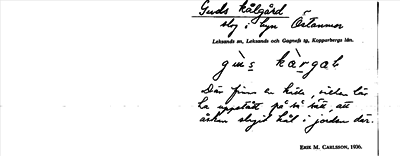 Guds kålgård
slog i byn Östanmor
Leksands sn, Leksands och Gagnefs tg, Kopparbergs län.
gùs kàrgaḷ
Där finns en källa, vilken lär
ha uppstått på så sätt, att
åskan slagit hål i jorden där.
ERIK M. CARLSSON, 1936.